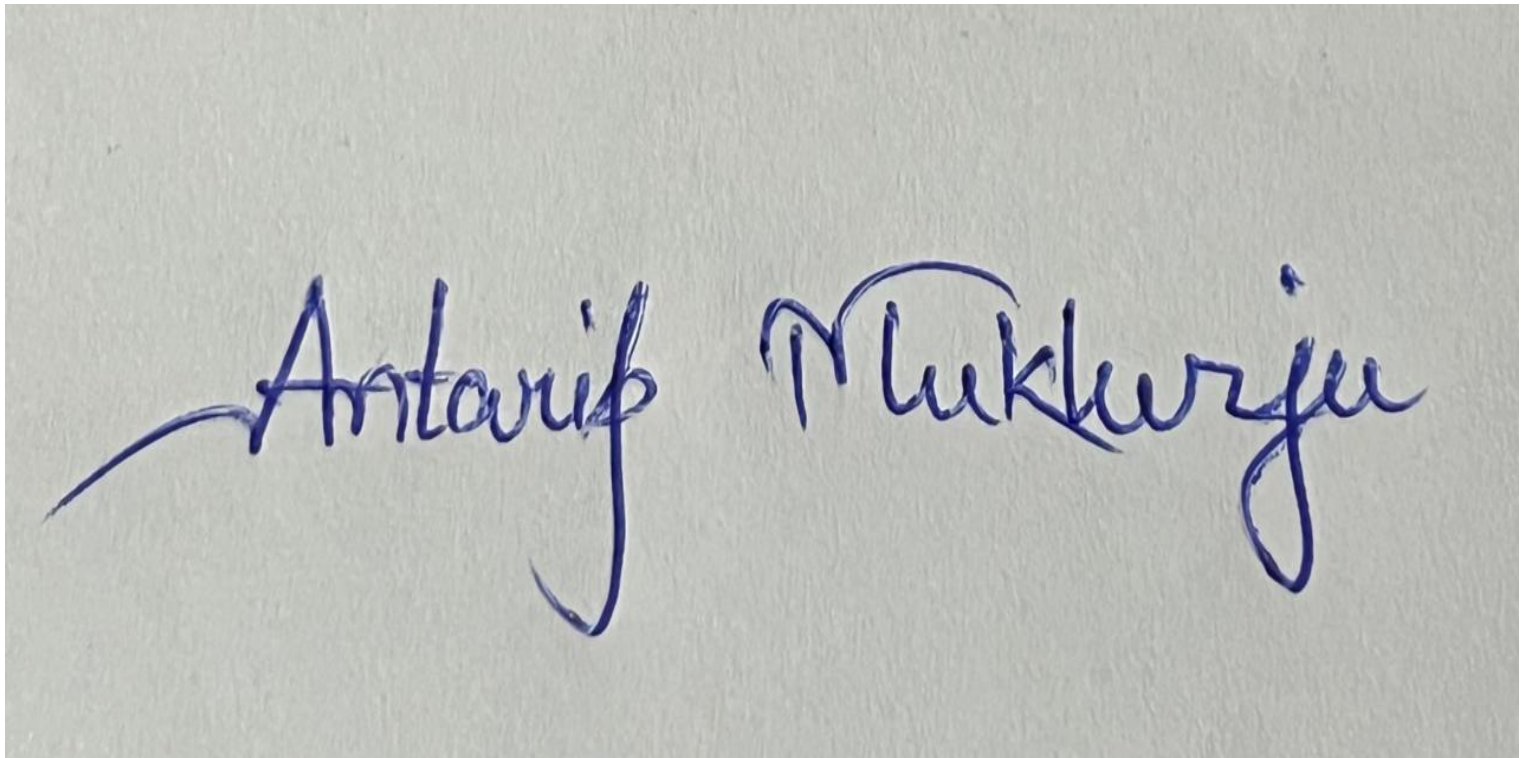 Antarip Mukherjee